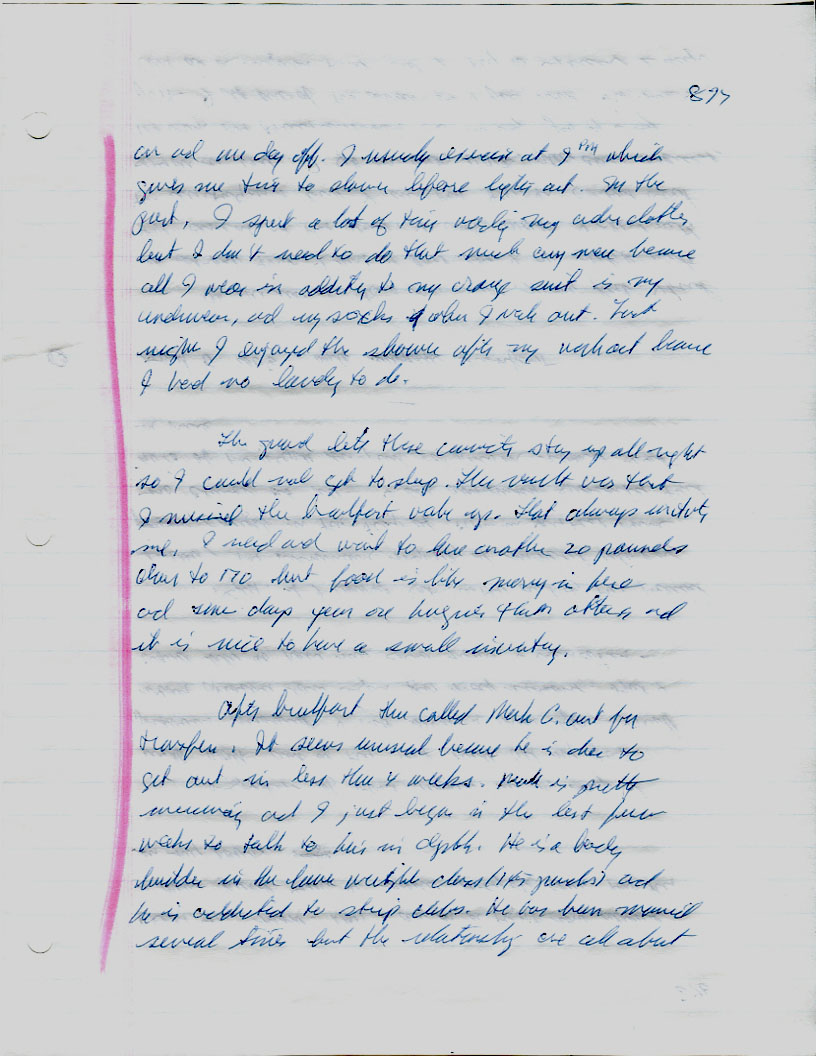 897
on and one day off. I usually exercise at 9 PM which
gives me time to shower before lights out. In the
past, I spent a lot of time washing my under clothes
but I don't need to do that much any more because
all I wear in addition to my orange suit is my
underwear, and my socks when I work out. Last
night I enjoyed the shower after my workout because
I had no laundry to do.
The guard lets these convicts stay up all night
so I could not get to sleep. The result was that
I missed the breakfast wake up. That always
me. I need and want to lose another 20 pounds
down to 170 but food is like money in here
and some days you are hungrier than others and
it is nice to have a small inventory.
After breakfast they called Mark C. out for
transfer. It seems unusual because he is due to
get out in less than 4 weeks. Mark is pretty
and I just began in the last few
weeks to talk to him in depth. He is a body
builder in the lower weight class (145 pounds) and
he is addicted to strip clubs. He has been married
several times but the relationship are all about